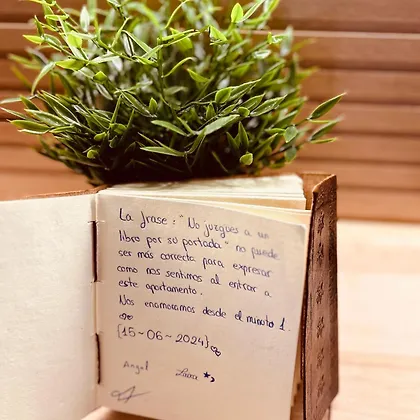 La frase: "No juzgues a un
libro por su portada" no puede
ser más correcta para expresar
como nos sentimos al entrar a
este apartamento.
Nos enamoramos desde el minuto 1.
{15~06~2024}
Angel Laura